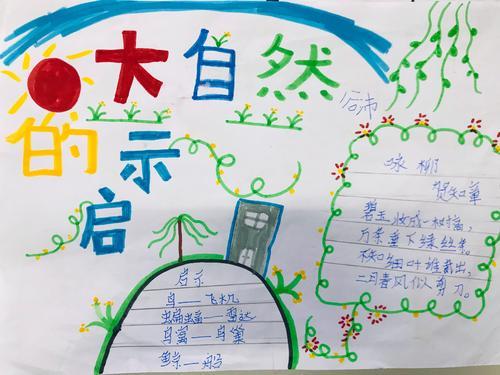 大自然
的启示
咏柳
贺知章
碧玉妆成一树高，
万条垂下绿丝绦。
不知细叶谁裁出，
二月春风似剪刀。
启示
鸟——飞机
蝙蝠——雷达
鸟窝——鸟巢
鲸——船